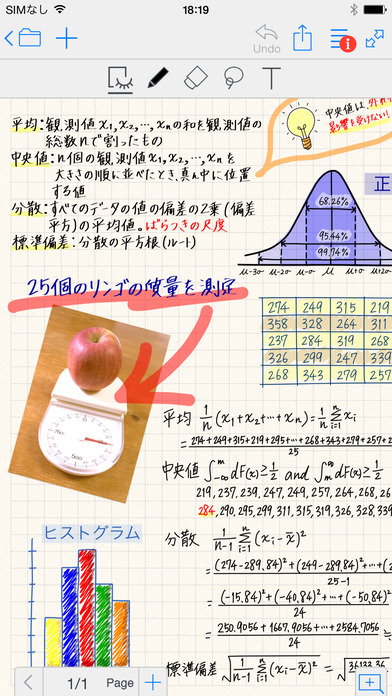 SIMなし 18:19
Undo
平均:観測値x1,x2,…,xnの和を観測値の
総数nで割ったもの
中央値:n個の観測値x1,x2,…,xnを
大きさの順に並べたとき、真ん中に位置
する値
分散:すべてのデータの値の偏差の2乗(偏差
平方)の平均値。ばらつきの尺度
標準偏差:分散の平方根(ルート)
中央値は、外れ
影響を受けない!
正
68.26%
95.44%
99.74%
μ-3σ μ-2σ μ-σ μ μ+σ μ+2σ
25個のリンゴの質量を測定
274 249 315 219
358 328 264 311
237 284 319 268
326 299 247 339
268 343 279 257
平均 1/n (x1+x2+…+xn)=1/n Σ[i=1→n] xi
=274+249+315+219+295+…+268+343+279+257+2
25
中央値 ∫[-∞→m] dF(x)≧1/2 and ∫[m→∞] dF(x)≧
219, 237, 239, 247, 249, 257, 264, 268, 26
284, 290, 295, 299, 311, 315, 319, 326, 328, 339
ヒストグラム
分散 1/(n-1) Σ[i=1→n] (xi-x̄)²
=(274-289.84)²+(249-289.84)²+…+(
25-1
=(-15.84)²+(-40.84)²+…+(-50.84)²
24
=250.9056+1667.9056+…+2584.7056
24
標準偏差 √1/(n-1) Σ[i=1→n] (xi-x̄)² =
1/1 Page